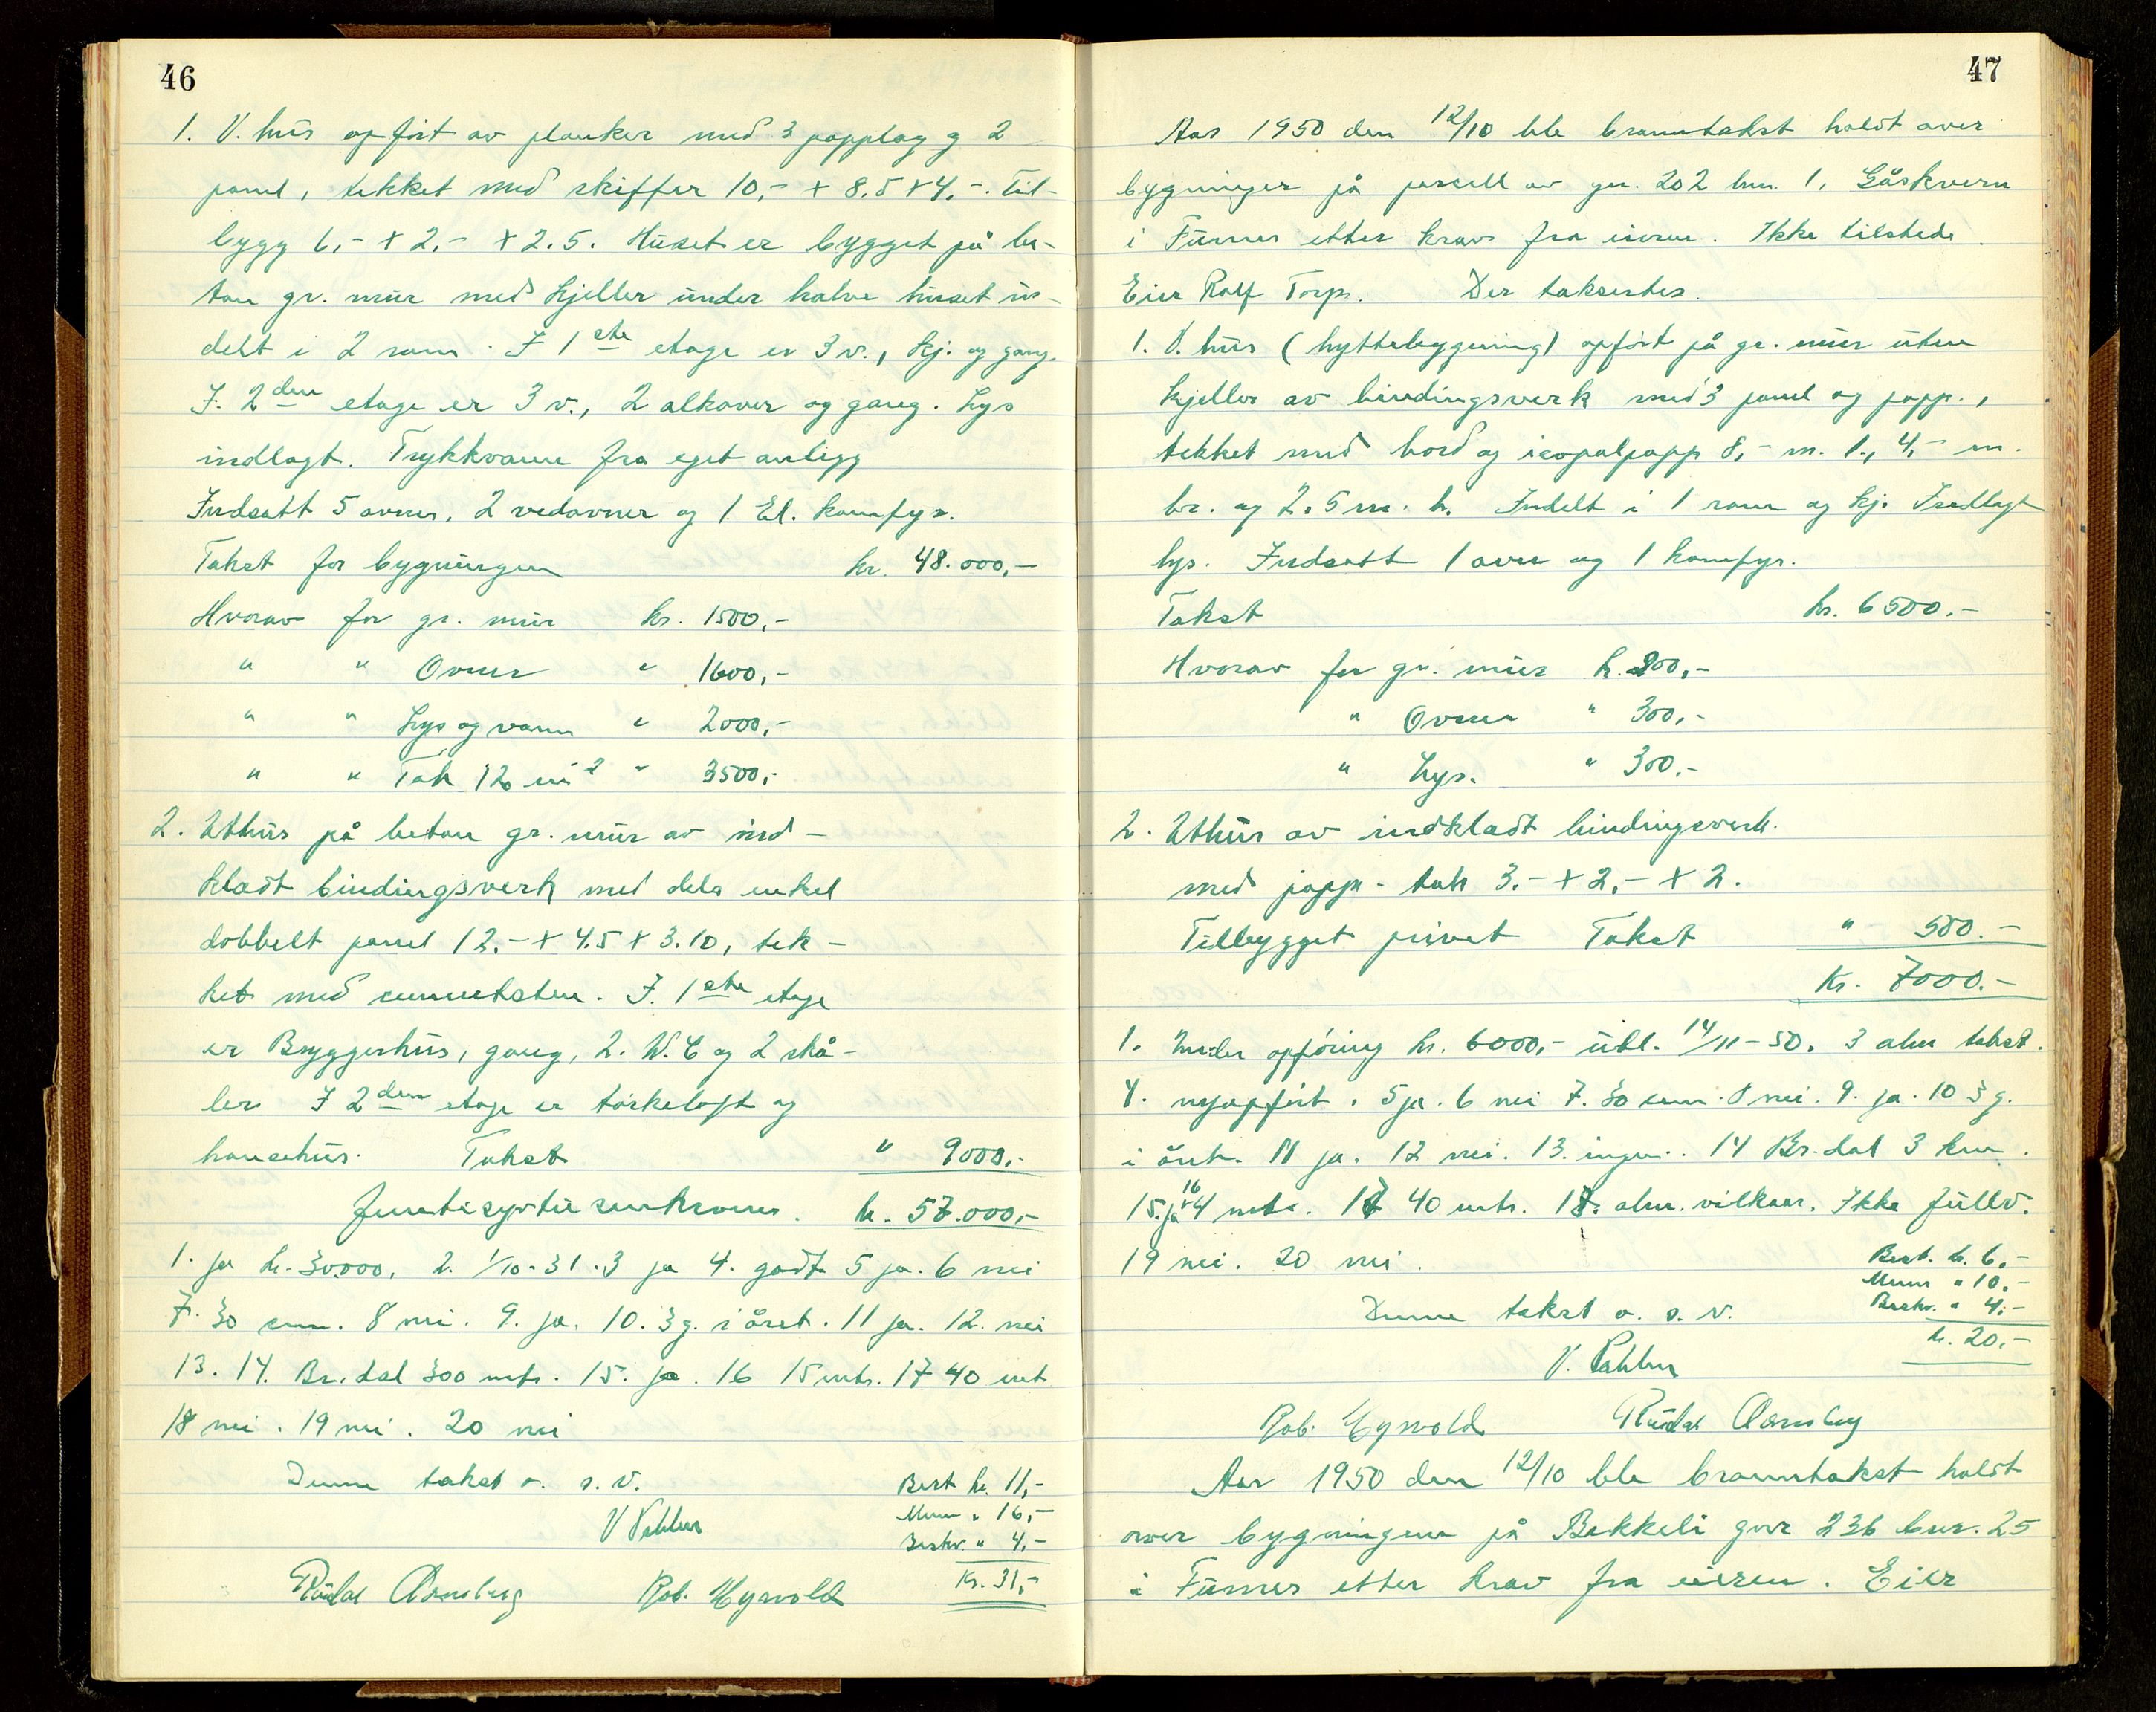 46
1. V. hus opført av planker med 3 papplag og 2
panel, tekket med skiffer 10,- x 8.5 x 4,-. Til-
bygg 6,- x 2,- x 2.5. Huset er bygget på be-
ton gr. mur med kjeller under halve huset in-
delt i 2 rom. I 1ste etage er 3 v., kj. og gang.
I. 2den etage er 3 v., 2 alkover og gang. Lys
indlagt. Trykkvann fra eget anlegg
Indsatt 5 ovner, 2 vedovner og 1 El. komfyr.
Takst for bygningen kr. 48.000,-
Hvorav for gr. mur kr. 1500,-
" " Ovner " 1600,-
" " Lys og vann " 2000,-
" " Tak 12 m2 " 3500,-
2. Uthus på beton gr. mur av ind-
kladt bindingsverk med dels enkel
dobbelt panel 12,- x 4.5 x 3.10, tek-
ket med cementsten. I. 1ste etage
er Bryggerhus, gang, 2. W.C og 2 skå-
ler I 2den etage er tørkeloft og
hønsehus. Takst " 9000,-
femtisyvtusenkroner. kr. 57.000,-
1. ja kr. 30.000, 2. 1/10-31. 3 ja 4. godt 5 ja. 6 nei
7. 30 cm. 8 nei. 9. ja. 10. 3 g. i året. 11 ja. 12. nei
13. 14. Br.dal 300 mtr. 15. ja. 16 15 mtr. 17 40 mt
18 nei. 19 nei. 20 nei
Denne takst o. s. v.
Best kr. 11,-
" 16,-
Beskr. " 4,-
Kr. 31,-
Rob. Myrvold
47
Aar 1950 den 12/10 ble branntakst holdt over
bygninger på parsell av gnr. 202 bnr. 1, Gåskvern
i Furnes etter krav fra eieren. Ikke tilstede.
Eier Rolf Torp. Der taksertes.
1. V. hus (hyttebygning) opført på gr. mur uten
kjeller av bindingsverk med 3 panel og papp.,
tekket med bord og icopalpapp 8,- m. l., 4,- m.
br. og 2.5 m. h. Indelt i 1 rom og kj. Indlagt
lys. Indsatt 1 ovn og 1 komfyr.
Takst kr. 6500.-
Hvorav for gr. mur kr. 200,-
" Ovner " 300,-
" Lys. " 300.-
2. Uthus av indkladt bindingsverk.
med papp-tak 3.- x 2,- x 2.
Tilbygget privet Takst " 500.-
Kr. 7000.-
1. Under opføring kr. 6000,- utl. 14/11-50. 3 alm takst.
4. nyopført. 5 ja. 6 nei 7. 30 cm. 8 nei. 9. ja. 10 3 g.
i året. 11 ja. 12 nei. 13. ingen. 14 Br.dal 3 km.
15. ja 16 4 mtr. 17 40 mtr. 18. alm. vilkaar. Ikke fullv.
19 nei. 20 nei.
Best. kr. 6,-
" 10,-
Beskr. " 4,-
kr. 20,-
Denne takst o. s. v.
Rob. Myrvold
Aar 1950 den 12/10 ble branntakst holdt
over bygningene på Bekkeli gnr 236 bnr. 25
i Furnes etter krav fra eieren. Eier